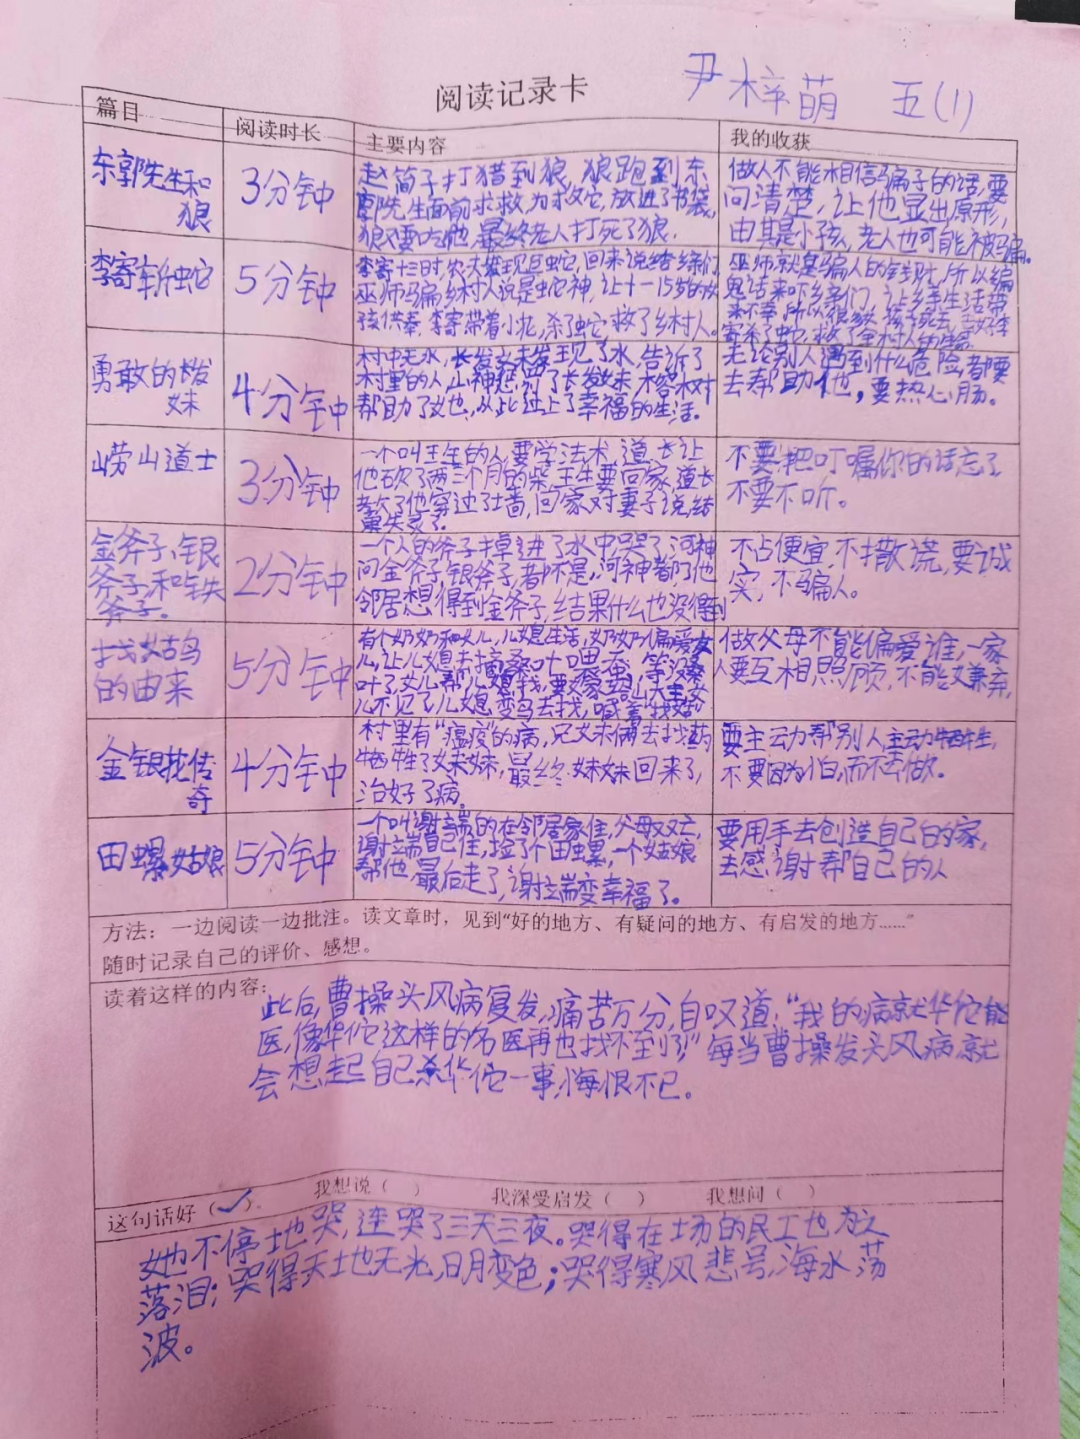 阅读记录卡
尹梓萌 五(1)
篇目 阅读时长 主要内容 我的收获
东郭先生和
狼
3分钟
赵简子打猎到狼,狼跑到东
郭先生面前求救,为求救它,放进了书袋,
狼要吃他,最终老人打死了狼.
做人不能相信骗子的话,要
问清楚,让他显出原形,
由其是小孩,老人也可能被骗。
李寄斩蛇
5分钟
李寄十三时,农夫发现巨蛇,回来说给乡亲们
巫师骗乡村人说是蛇神,让十一15岁的女
孩供奉,李寄带着小北,杀了蛇救了乡村人。
巫师就是骗人的
鬼话来吓乡亲们,
寄杀了蛇,救了全村人的生命
勇敢的拨
妹
4分钟
村中无水,长发妹发现了水,告诉了
村里的人,山神惩罚了长发妹,榕树
帮助了她,从此过上了幸福的生活。
无论别人遇到什么危险,都要
去帮助他,要热心肠。
崂山道士
3分钟
一个叫王生的人,要学法术,道长让
他砍了两三个月的柴,王生要回家,道长
教了他穿过了墙,回家对妻子说,结
果失灵了.
不要把叮嘱你的话忘了
不要不听。
金斧子、银
斧子和铁
斧子.
2分钟
一个人的斧子掉进了水中哭了,河神
问金斧子,银斧子,都不是,河神都门他
邻居想得到金斧子,结果什么也没得到
不占便宜,不撒谎,要诚
实,不骗人。
找姑鸟
的由来
5分钟
有个奶奶和女儿,儿媳生活,奶奶偏爱女
儿,让儿媳去摘桑叶喂蚕,等没桑
叶了,女儿帮儿媳找,要嫁给山大王,女
儿不见了,儿媳变鸟去找,喊着找姑
做父母不能偏爱谁,一家
人要互相照顾,不能又兼弃,
金银花传
奇
4分钟
村里有“瘟疫”的病,兄父求俩去抄药
牺牲了妹妹,最终妹妹回来了,
治好了病。
要主动帮别人主动牺牲,
不要因为怕,而不去做。
田螺姑娘
5分钟
一个叫谢端的在邻居家住,父母双亡,
谢端自己住,捡了个田螺,一个姑娘
帮他,最后走了,谢端变幸福了。
要用手去创造自己的家,
去感谢帮自己的人
方法:一边阅读一边批注。读文章时,见到“好的地方、有疑问的地方、有启发的地方……”
随时记录自己的评价、感想。
读着这样的内容:
此后,曹操头风病复发,痛苦万分,自叹道,“我的病就华佗能
医,像华佗这样的名医再也找不到了!”每当曹操发头风病就
会想起自己杀华佗一事,悔恨不已。
这句话好(✓) 我想说( ) 我深受启发( ) 我想问( )
她不停地哭,连哭了三天三夜。哭得在场的民工也为之
落泪;哭得天地无光,日月变色;哭得寒风悲号,海水荡
波。